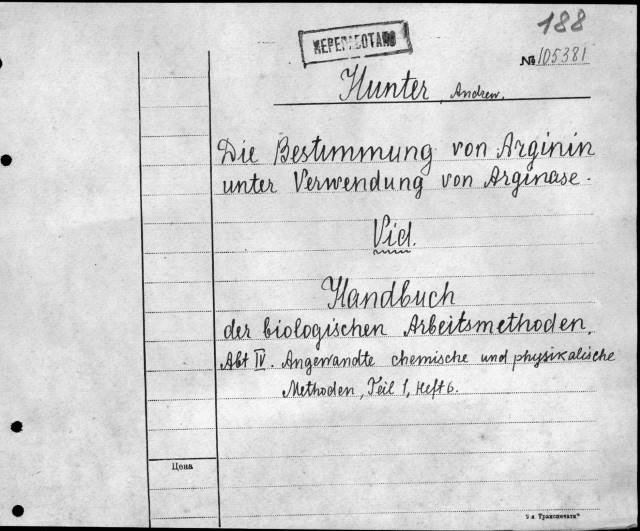 188
ПЕРЕРАБОТАНО
№ 105381
Hunter, Andrew.
Die Bestimmung von Arginin
unter Verwendung von Arginase.
Vid.
Handbuch
der biologischen Arbeitsmethoden,
Abt IV. Angewandte chemische und physikalische
Methoden, Teil 1, Heft 6.
Цена
Транспечати"